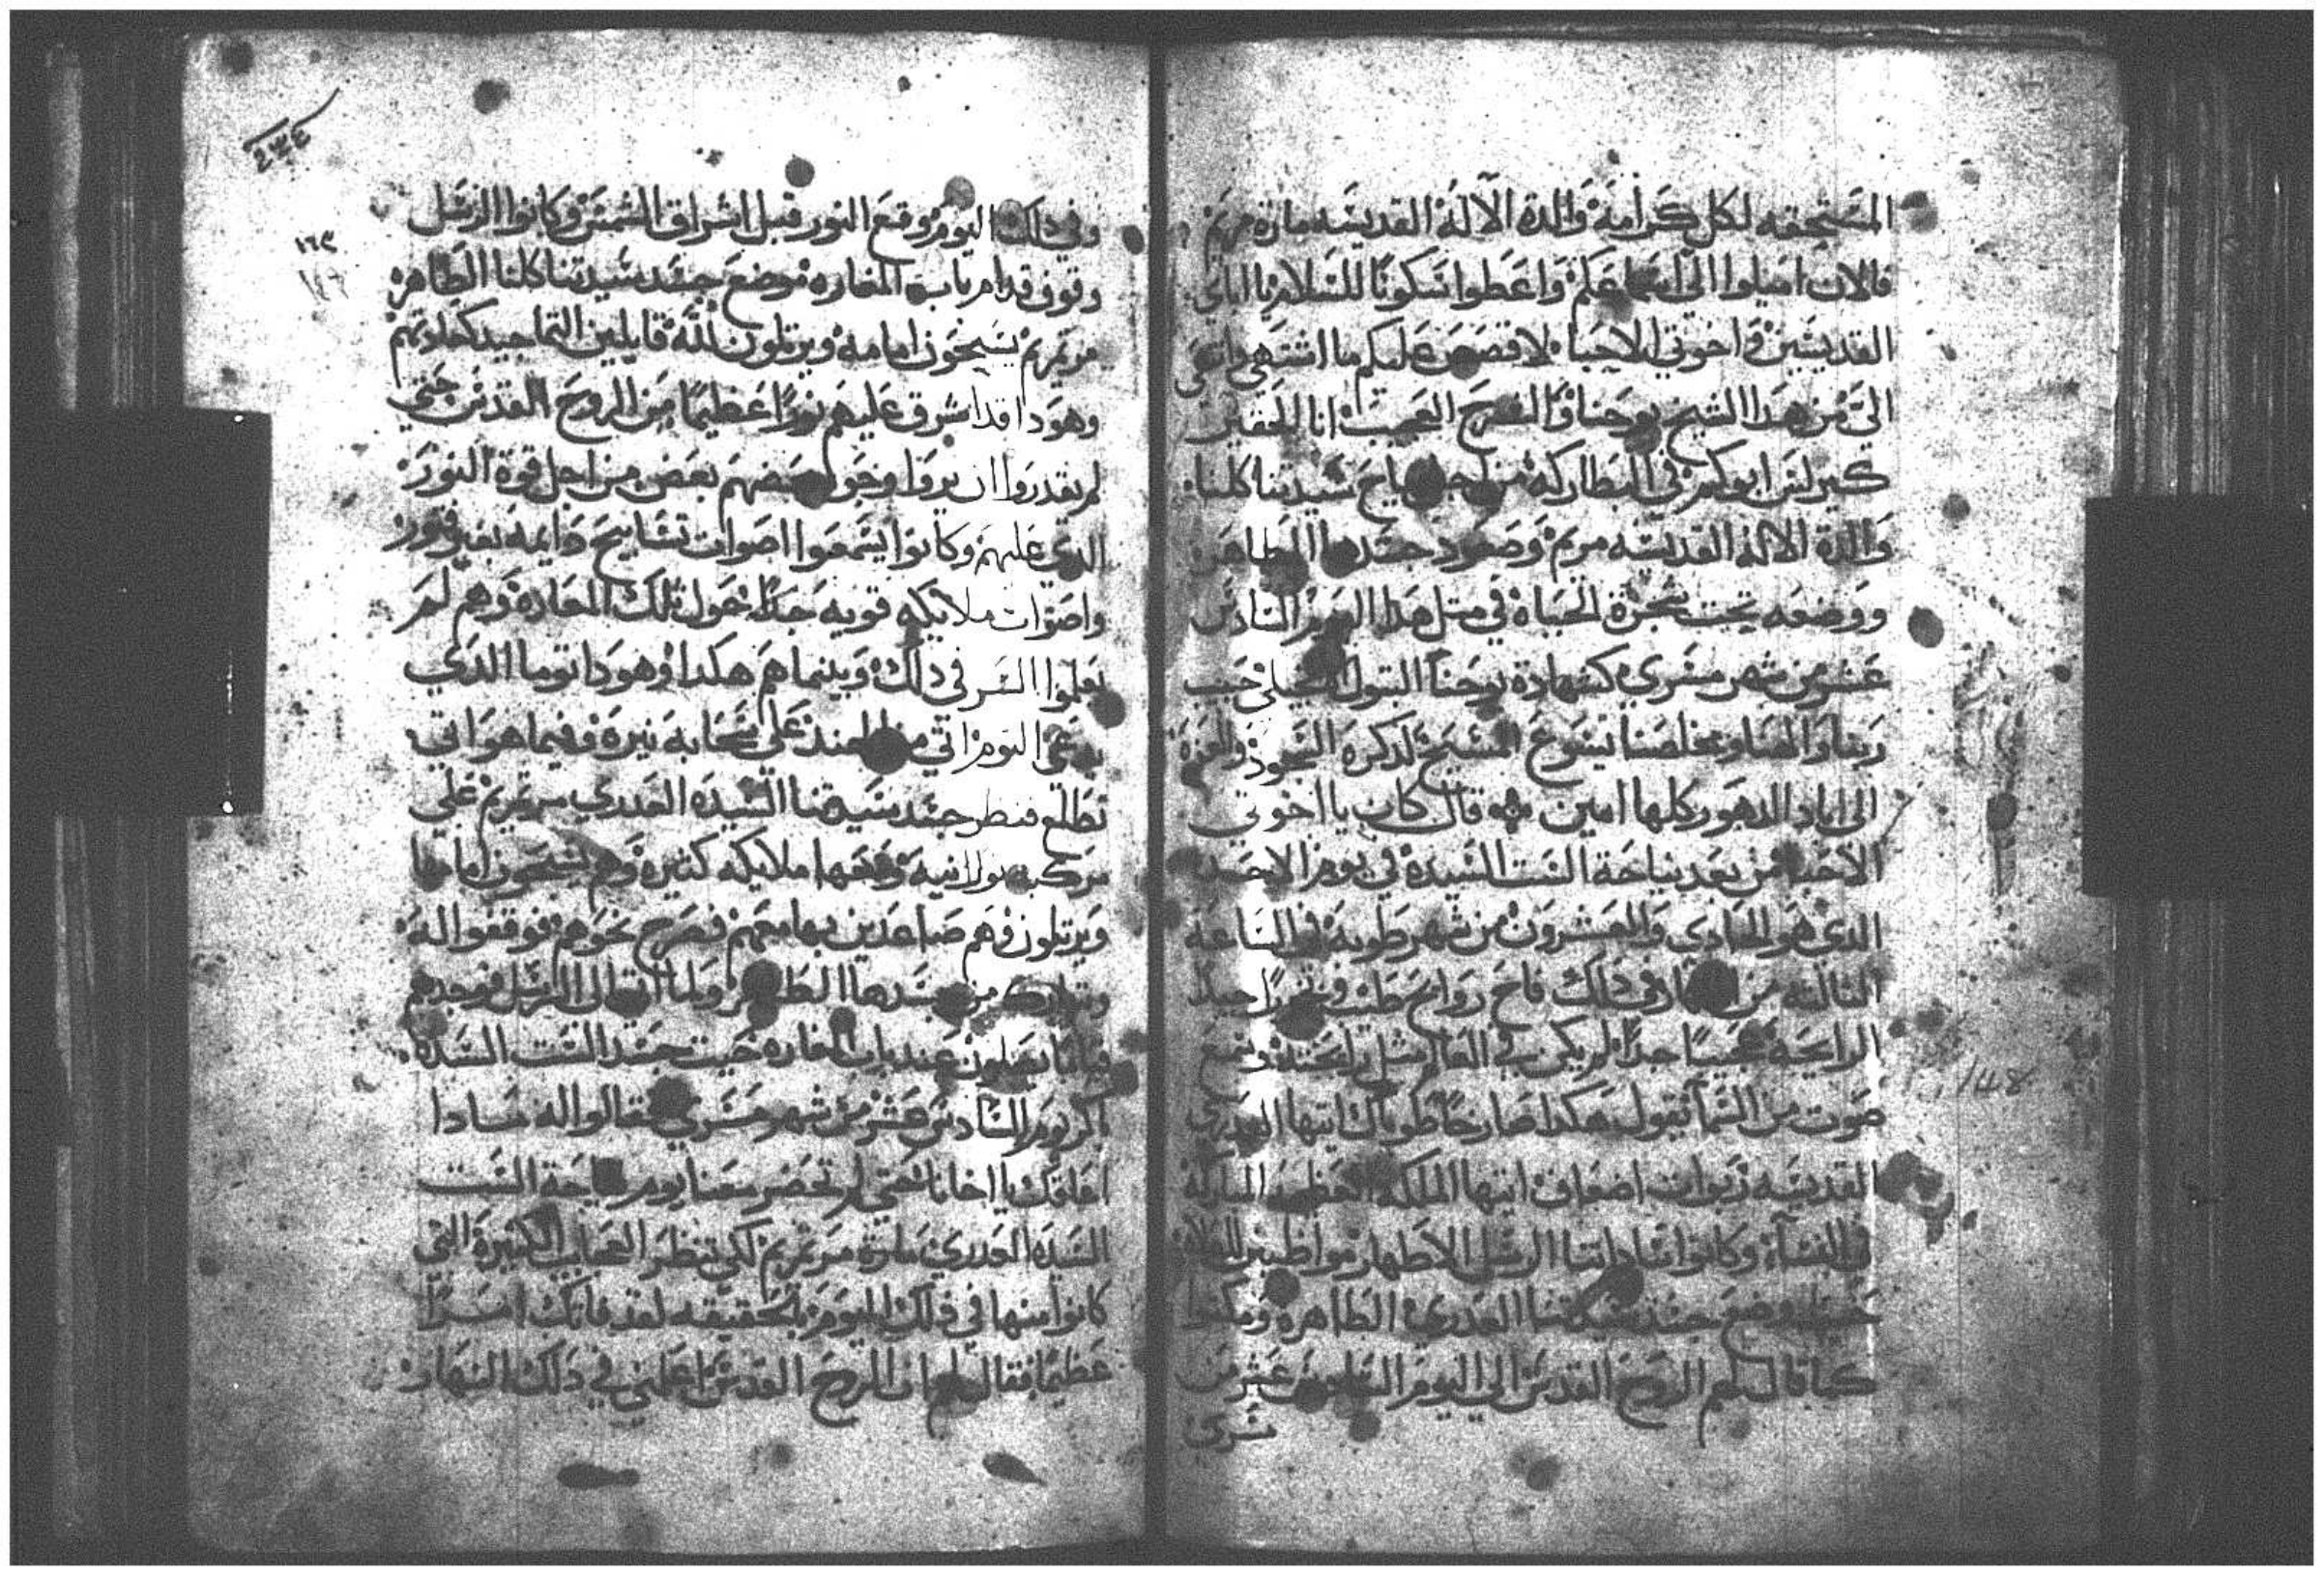 المستحقه لكل كرامة والدة الاله القديسه مارة مريم
فالان اميلوا الي اسماعكم واعطوا سكونا للسلام يا اباي
القديسين واخوتي الاحبا لاقصص عليكم ما انتهي واتهي
الي من هدا الشيخ يوحنا والفرح العجيب انا الحقير
كيرلس ابوكم في البطاركه من اجل نياح سيدتنا كلنا
والدة الاله القديسه مريم وصعود جسدها الطاهر
ووضعه تحت شجرة الحياة في مثل هدا اليوم السادس
عشر من شهر مسري كشهادة يوحنا البتول الانجيلي حبيب
ربنا والهنا ومخلصنا يسوع المسيح لدكره السجود والعزة
الي اباد الدهور كلها امين قال كان يا اخوتي
الاحبا من بعد نياحة الست السيدة في يوم الاحد
الدي هو الحادي والعشرون من شهر طوبه في الساعة
الثالثه من النهار وفي دلك فاح روايح طيب وبخورا جيد
الرايحة عجيبا جدا لم يكن في العالم مثل رايحته وسمع
صوت من السما تقول هكدا صارخا طوباك ايتها العدري
القديسه ربوات اضعاف ايتها الملكه العظيمه المباركة
في النساء وكانوا ساداتنا الرسل الاطهار مواظبين الصلاه
حيث وضع جسد سيدتنا العدري الطاهرة ومكثوا
كما قال لهم الروح القدس الي اليوم السادس عشر من
مسري
٢٣٤
وفي دلك اليوم وقع النور قبل اشراق الشمس وكانوا الرسل
١٦٣
وقوف قدام باب المغاره موضع جسد سيدتنا كلنا الطاهرة
مرتمريم يسبحون امامه ويرتلون لله قايلين التماجيد كعادتهم
وهودا قد اشرق عليهم نورا عظيما من الروح القدس حتي
لم يقدروا ان يروا وجوه بعضهم بعض من اجل قوة النور
الدي عليهم وكانوا يسمعوا اصوات تسابيح دايمه بغير فتور
واصوات ملايكه قويه جدا حول تلك المغارة وهم لم
يعلموا السر في دلك وبينما هم هكدا وهودا توما الدي
يدعي التوم اتي من الهند علي سحابه نيرة وفيما هو اتي
تطلع فنظر جسد سيدتنا السيده العدري مرتمريم علي
مركبه نورانيه ومعها ملايكه كتيره وهم يسبحون امامها
ويرتلون وهم صاعدين بها معهم فصرخ نحوهم فوقفوا له
وتبارك من جسدها الطاهر ولما اتي الي الرسل فوجدهم
قياما يصلون عند باب المغاره حيت جسد الست السيدة
اكر يوم السادس عشر من شهر مسري فقالوا له مادا
اعاقك يا اخانا حتي لم تحضر معنا يوم نياحة الست
السيده العدري مارة مرتمريم لكي تنظر العجايب الكتيرة التي
كانوا منها في دلك اليوم بالحقيقه لقد فاتك امرا
عظيما فقال لهم ان الروح القدس اعلمني في دلك النهار